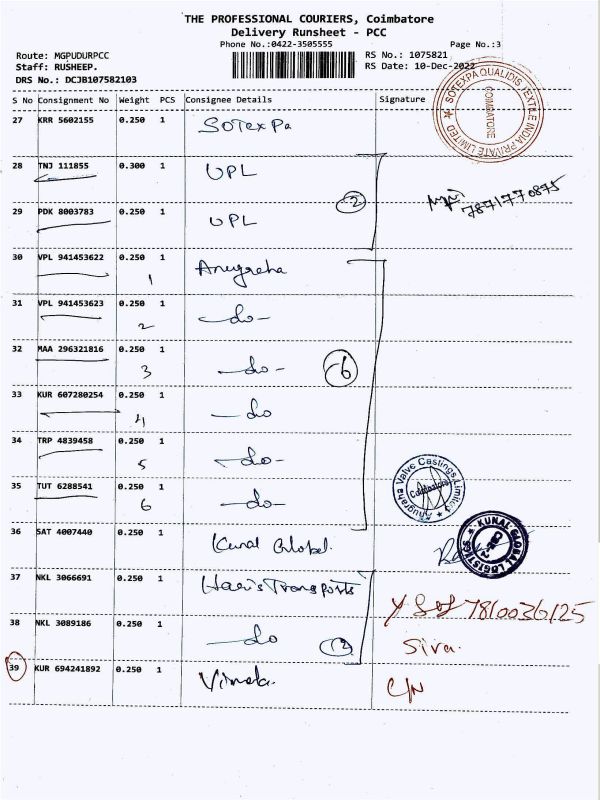 THE PROFESSIONAL COURIERS, Coimbatore
Delivery Runsheet - PCC
Phone No.:0422-3505555 Page No.:3
Route: MGPUDURPCC RS No.: 1075821
Staff: RUSHEEP. RS Date: 10-Dec-2022
DRS No.: DCJB107582103
S No Consignment No Weight PCS Consignee Details Signature
SOTEXPA QUALIDIS TEXTILE INDIA PRIVATE LIMITED COIMBATORE
27 KRR 5602155 0.250 1 SOTexPa
28 TNJ 111855 0.300 1 UPL
2
7871770875
29 PDK 8003783 0.250 1 UPL
30 VPL 941453622 0.250 1 Anugraha
1
31 VPL 941453623 0.250 1 -do-
2
32 MAA 296321816 0.250 1 -do-
3 6
33 KUR 607280254 0.250 1 -do
4
34 TRP 4839458 0.250 1 -do-
5
35 TUT 6288541 0.250 1 -do-
6
Anugraha Valve Castings Limited Coimbatore
36 SAT 4007440 0.250 1 Kunal Global.
KUNAL GLOBAL LOGISTICS
37 NKL 3066691 0.250 1 Hari's Transports
7810036125
38 NKL 3089186 0.250 1 -do 2
Siva.
39 KUR 694241892 0.250 1 Vimala.
C/N